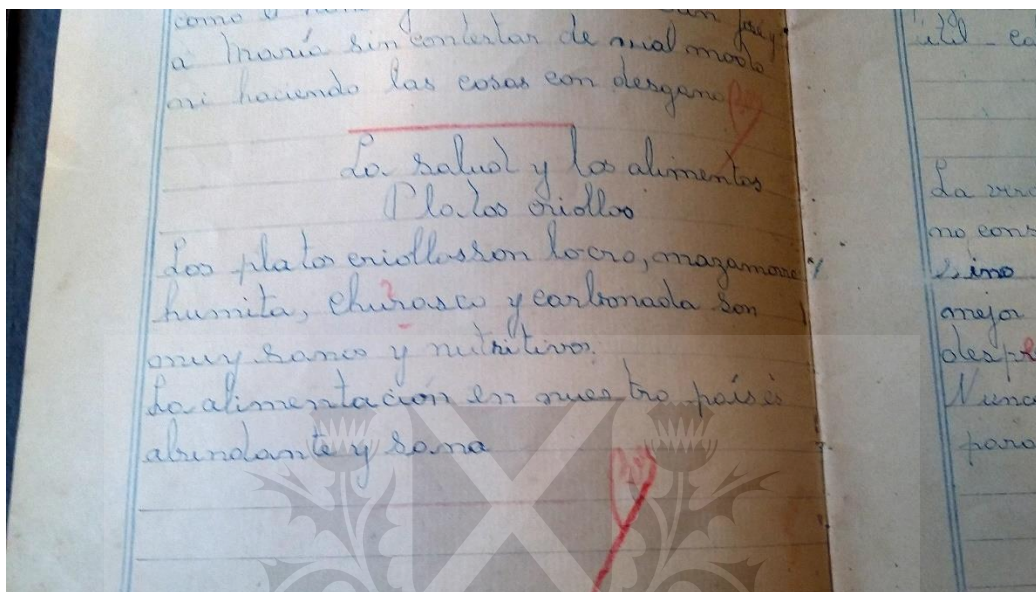 como
a María sin contestar de mal modo
ni haciendo las cosas con desgano
La salud y los alimentos
Platos criollos
Los plato criollos son locro, mazamorra y
humita, churasco y carbonada son
muy sanos y nutritivos.
La alimentación en nuestro país es
abundante y sana
util - ca
La vir
no cons
sino
mejor
despre
Nunca
para